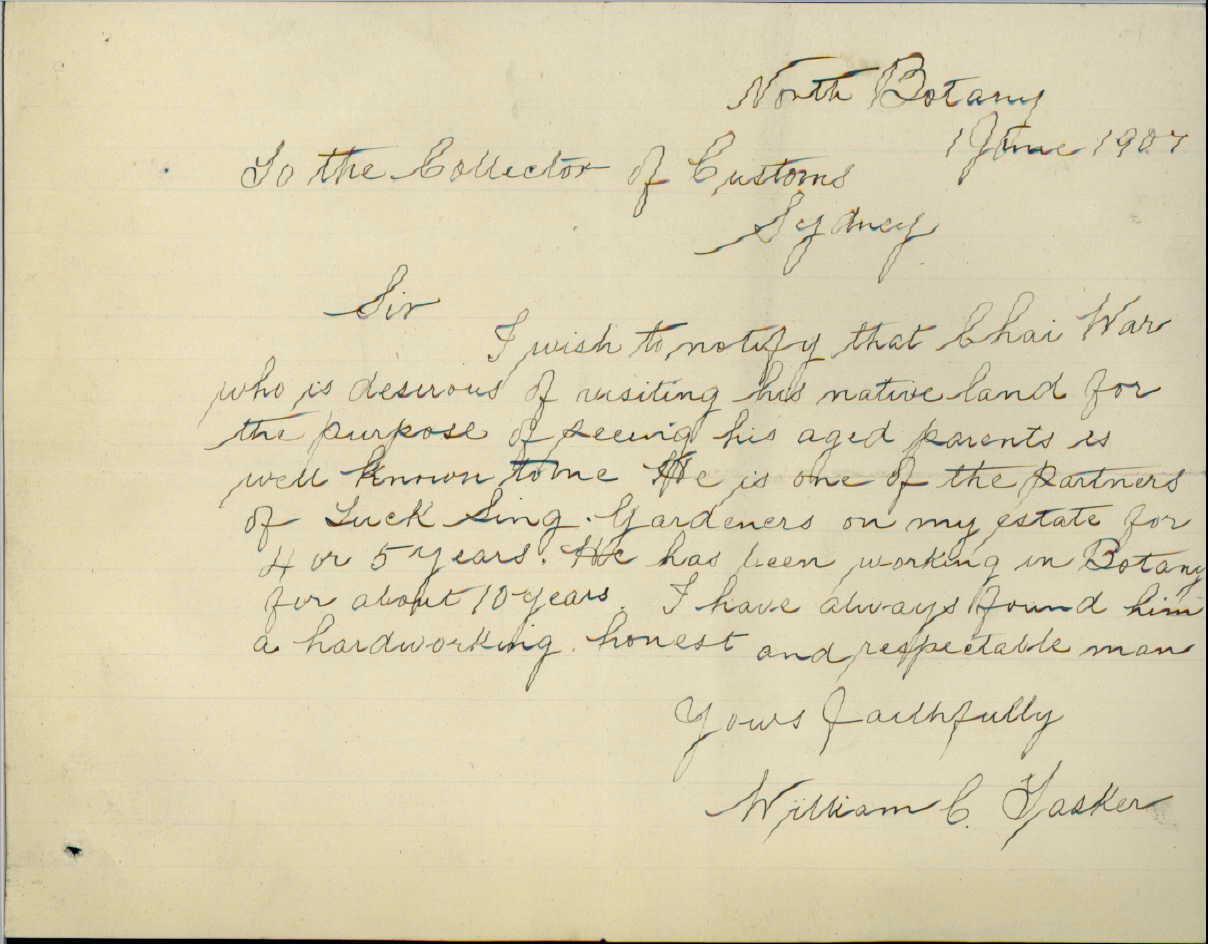 North Botany
1 June 1907
To the Collector of Customs
Sydney
Sir
I wish to notify that Chai War
who is desirous of visiting his native land for
the purpose of seeing his aged parents is
well known to me He is one of the partners
of Luck Sing. Gardeners on my estate for
4 or 5 years. He has been working in Botany
for about 10 years. I have always found him
a hardworking. honest and respectable man
Yours faithfully
William C. Tasker